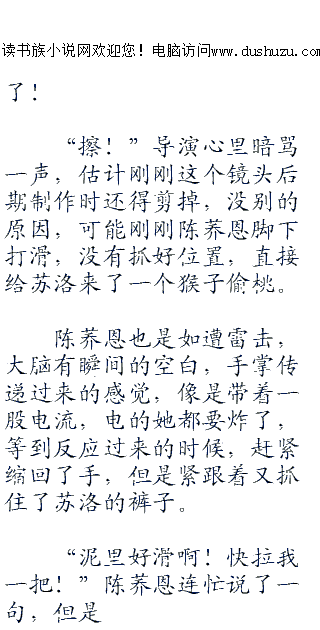 读书族小说网欢迎您！电脑访问www.dushuzu.com
了！
“擦！”导演心里暗骂
一声，估计刚刚这个镜头后
期制作时还得剪掉，没别的
原因，可能刚刚陈荞恩脚下
打滑，没有抓好位置，直接
给苏洛来了一个猴子偷桃。
陈荞恩也是如遭雷击，
大脑有瞬间的空白，手掌传
递过来的感觉，像是带着一
股电流，电的她都要炸了，
等到反应过来的时候，赶紧
缩回了手，但是紧跟着又抓
住了苏洛的裤子。
“泥里好滑啊！快拉我
一把！”陈荞恩连忙说了一
句，但是